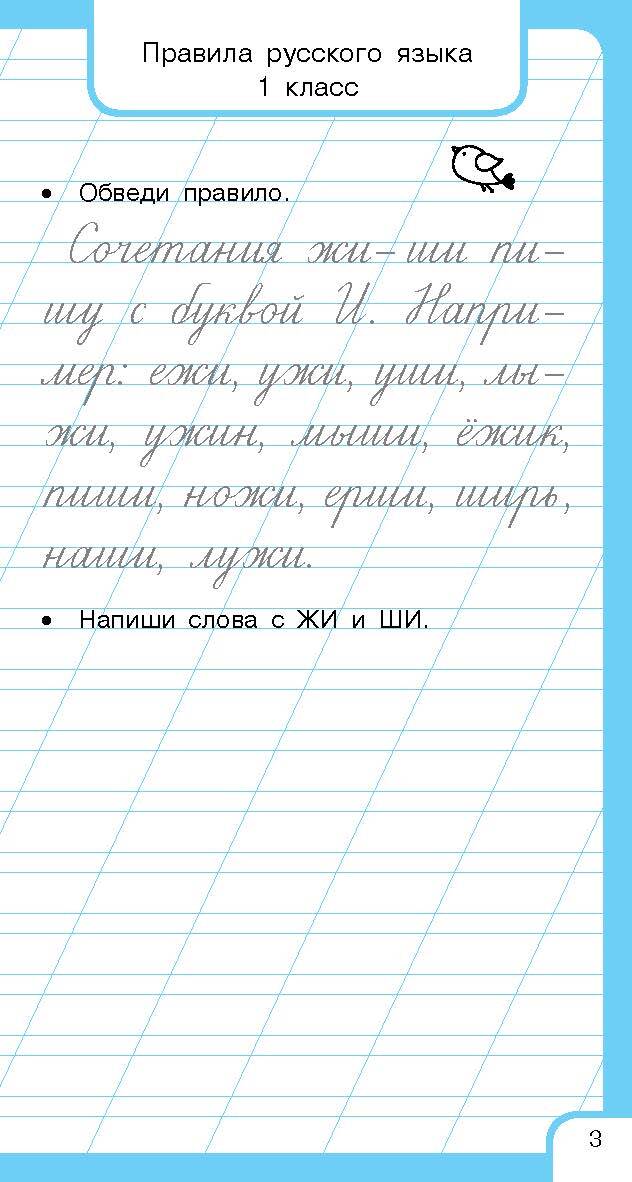 Правила русского языка
1 класс
• Обведи правило.
Сочетания жи – ши пи –
шу с буквой И. Напри –
мер: ежи, ужи, уши, лы –
жи, ужин, мыши, ёжик,
пиши, ножи, ерши, ширь,
наши, лужи.
• Напиши слова с ЖИ и ШИ.
3